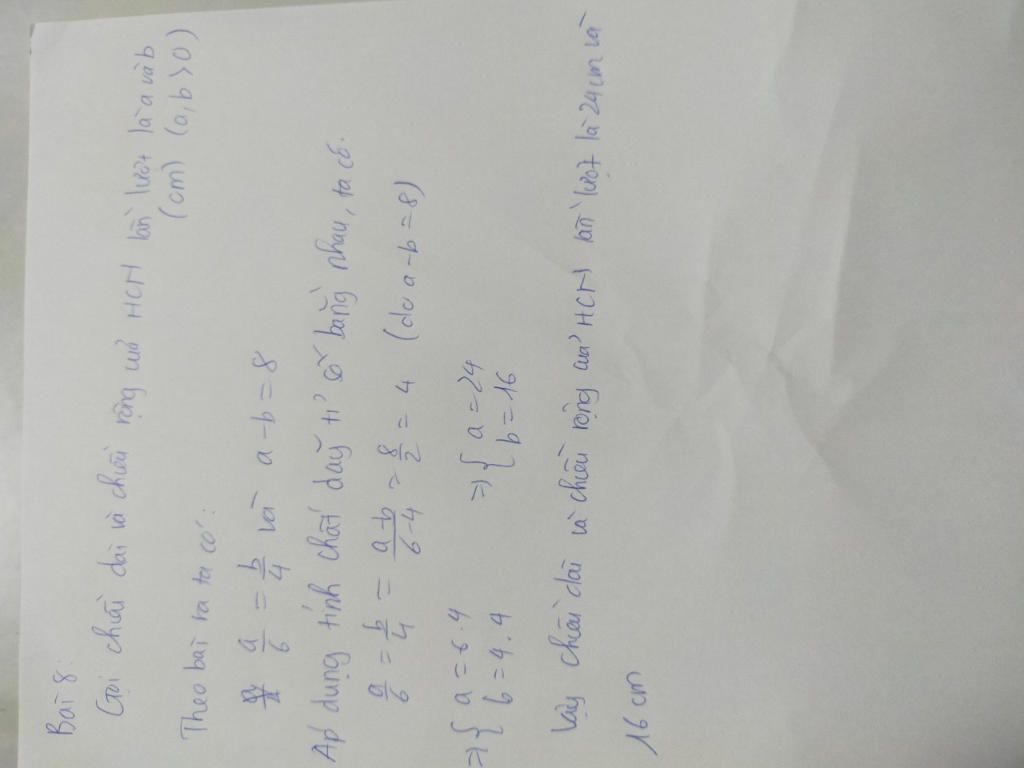 Bài 8:
Gọi chiều dài và chiều rộng của HCN lần lượt là a và b
(cm) (a, b > 0)
Theo bài ra ta có:
a/6 = b/4 và a - b = 8
Áp dụng tính chất dãy tỉ số bằng nhau, ta có.
a/6 = b/4 = a-b/6-4 = 8/2 = 4 (do a - b = 8)
=> { a = 6.4 => { a = 24
b = 4.4 b = 16
Vậy chiều dài và chiều rộng của HCN lần lượt là 24cm và
16 cm